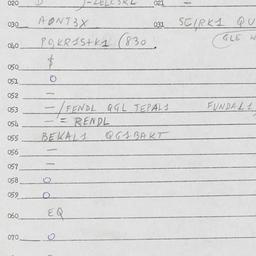 020 021 —
030 AØNT3X 031 SCIRK1 QU
040 PQKR1S+K1 (830. (GLE
050 $
051 O
052 —
053 — /FENDL QGL TEPAL1 FUNDAL1
054 — = RENDL
055 BEKAL1 QG1BAKT
056 —
057 —
058 O
059 O
060 EQ
070 O